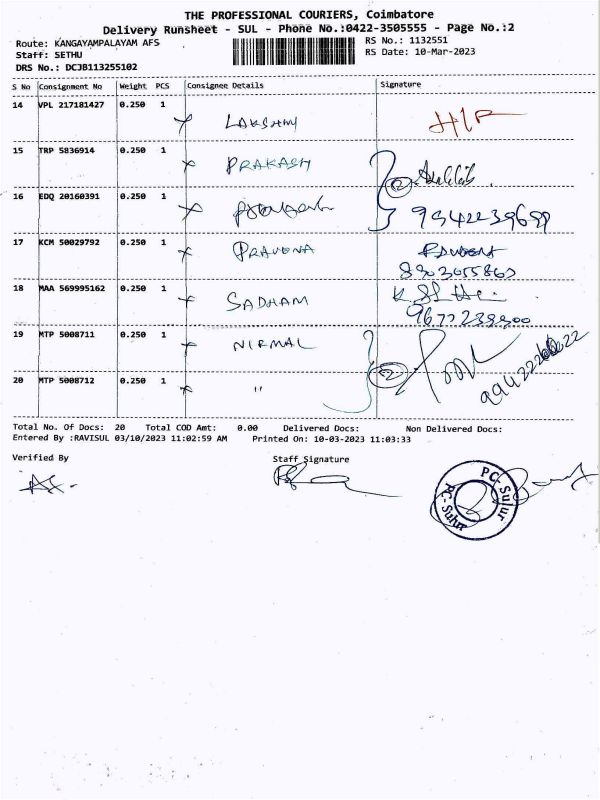 THE PROFESSIONAL COURIERS, Coimbatore
Delivery Runsheet - SUL - Phone No.:0422-3505555 - Page No.:2
Route: KANGAYAMPALAYAM AFS
RS No.: 1132551
Staff: SETHU
RS Date: 10-Mar-2023
DRS No.: DCJB113255102
S No Consignment No Weight PCS Consignee Details Signature
14 VPL 217181427 0.250 1 LAKSHMY
15 TRP 5836914 0.250 1 PRAKASH
16 EDQ 20160391 0.250 1
17 KCM 50029792 0.250 1 PRAVEENA
18 MAA 569995162 0.250 1 SADHAM
19 MTP 5008711 0.250 1 NIRMAL
20 MTP 5008712 0.250 1 "
Total No. Of Docs: 20 Total COD Amt: 0.00 Delivered Docs: Non Delivered Docs:
Entered By :RAVISUL 03/10/2023 11:02:59 AM Printed On: 10-03-2023 11:03:33
Verified By Staff Signature
PC-Sulur
PC-Sulur